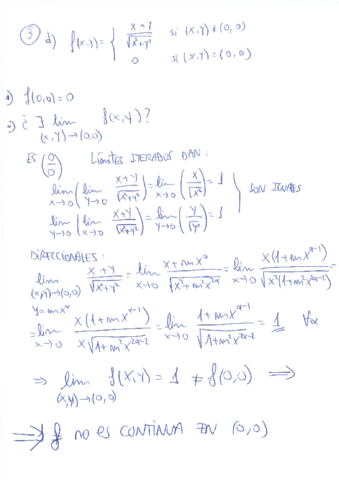 ③ d) f(x,y) = { x+y / √(x²+y²) si (x,y) ≠ (0,0)
0 si (x,y) = (0,0)
•) f(0,0) = 0
•) ¿ ∃ lim (x,y)→(0,0) f(x,y)?
ES (0/0) LÍMITES ITERADOS DAN:
lim x→0 (lim y→0 x+y / √(x²+y²)) = lim x→0 (x / √x²) = 1
lim y→0 (lim x→0 x+y / √(x²+y²)) = lim y→0 (y / √y²) = 1 } SON IGUALES
DIRECCIONALES:
lim (x,y)→(0,0) y=mxᵅ x+y / √(x²+y²) = lim x→0 x+mxᵅ / √(x²+m²x²ᵅ) = lim x→0 x(1+mxᵅ⁻¹) / √(x²(1+m²x²ᵅ⁻²)) =
= lim x→0 x(1+mxᵅ⁻¹) / x√(1+m²x²ᵅ⁻²) = lim x→0 1+mxᵅ⁻¹ / √(1+m²x²ᵅ⁻²) = 1 ∀α
⇒ lim (x,y)→(0,0) f(x,y) = 1 ≠ f(0,0) ⇒
⇒ f no es CONTINUA EN (0,0)